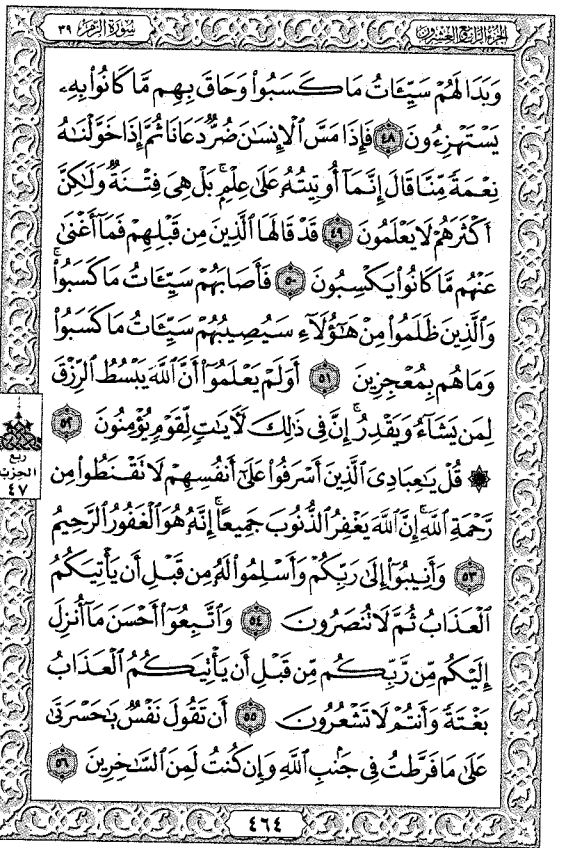 سُورَةُ الزُّمَرِ ٣٩
الجُزءُ الرَّابِعُ وَالعِشْرُون
وَبَدَا لَهُمْ سَيِّئَاتُ مَا كَسَبُوا۟ وَحَاقَ بِهِم مَّا كَانُوا۟ بِهِۦ
يَسْتَهْزِءُونَ ٤٨ فَإِذَا مَسَّ ٱلْإِنسَٰنَ ضُرٌّ دَعَانَا ثُمَّ إِذَا خَوَّلْنَٰهُ
نِعْمَةً مِّنَّا قَالَ إِنَّمَآ أُوتِيتُهُۥ عَلَىٰ عِلْمٍۭ ۚ بَلْ هِىَ فِتْنَةٌ وَلَٰكِنَّ
أَكْثَرَهُمْ لَا يَعْلَمُونَ ٤٩ قَدْ قَالَهَا ٱلَّذِينَ مِن قَبْلِهِمْ فَمَآ أَغْنَىٰ
عَنْهُم مَّا كَانُوا۟ يَكْسِبُونَ ٥٠ فَأَصَابَهُمْ سَيِّئَاتُ مَا كَسَبُوا۟ ۚ
وَٱلَّذِينَ ظَلَمُوا۟ مِنْ هَٰٓؤُلَآءِ سَيُصِيبُهُمْ سَيِّئَاتُ مَا كَسَبُوا۟
وَمَا هُم بِمُعْجِزِينَ ٥١ أَوَلَمْ يَعْلَمُوٓا۟ أَنَّ ٱللَّهَ يَبْسُطُ ٱلرِّزْقَ
لِمَن يَشَآءُ وَيَقْدِرُ ۚ إِنَّ فِى ذَٰلِكَ لَءَايَٰتٍ لِّقَوْمٍ يُؤْمِنُونَ ٥٢
۞ قُلْ يَٰعِبَادِىَ ٱلَّذِينَ أَسْرَفُوا۟ عَلَىٰٓ أَنفُسِهِمْ لَا تَقْنَطُوا۟ مِن
رَّحْمَةِ ٱللَّهِ ۚ إِنَّ ٱللَّهَ يَغْفِرُ ٱلذُّنُوبَ جَمِيعًا ۚ إِنَّهُۥ هُوَ ٱلْغَفُورُ ٱلرَّحِيمُ
٥٣ وَأَنِيبُوٓا۟ إِلَىٰ رَبِّكُمْ وَأَسْلِمُوا۟ لَهُۥ مِن قَبْلِ أَن يَأْتِيَكُمُ
ٱلْعَذَابُ ثُمَّ لَا تُنصَرُونَ ٥٤ وَٱتَّبِعُوٓا۟ أَحْسَنَ مَآ أُنزِلَ
إِلَيْكُم مِّن رَّبِّكُم مِّن قَبْلِ أَن يَأْتِيَكُمُ ٱلْعَذَابُ
بَغْتَةً وَأَنتُمْ لَا تَشْعُرُونَ ٥٥ أَن تَقُولَ نَفْسٌ يَٰحَسْرَتَىٰ
عَلَىٰ مَا فَرَّطتُ فِى جَنۢبِ ٱللَّهِ وَإِن كُنتُ لَمِنَ ٱلسَّٰخِرِينَ ٥٦
ربع
الحزب
٤٧
٤٦٤